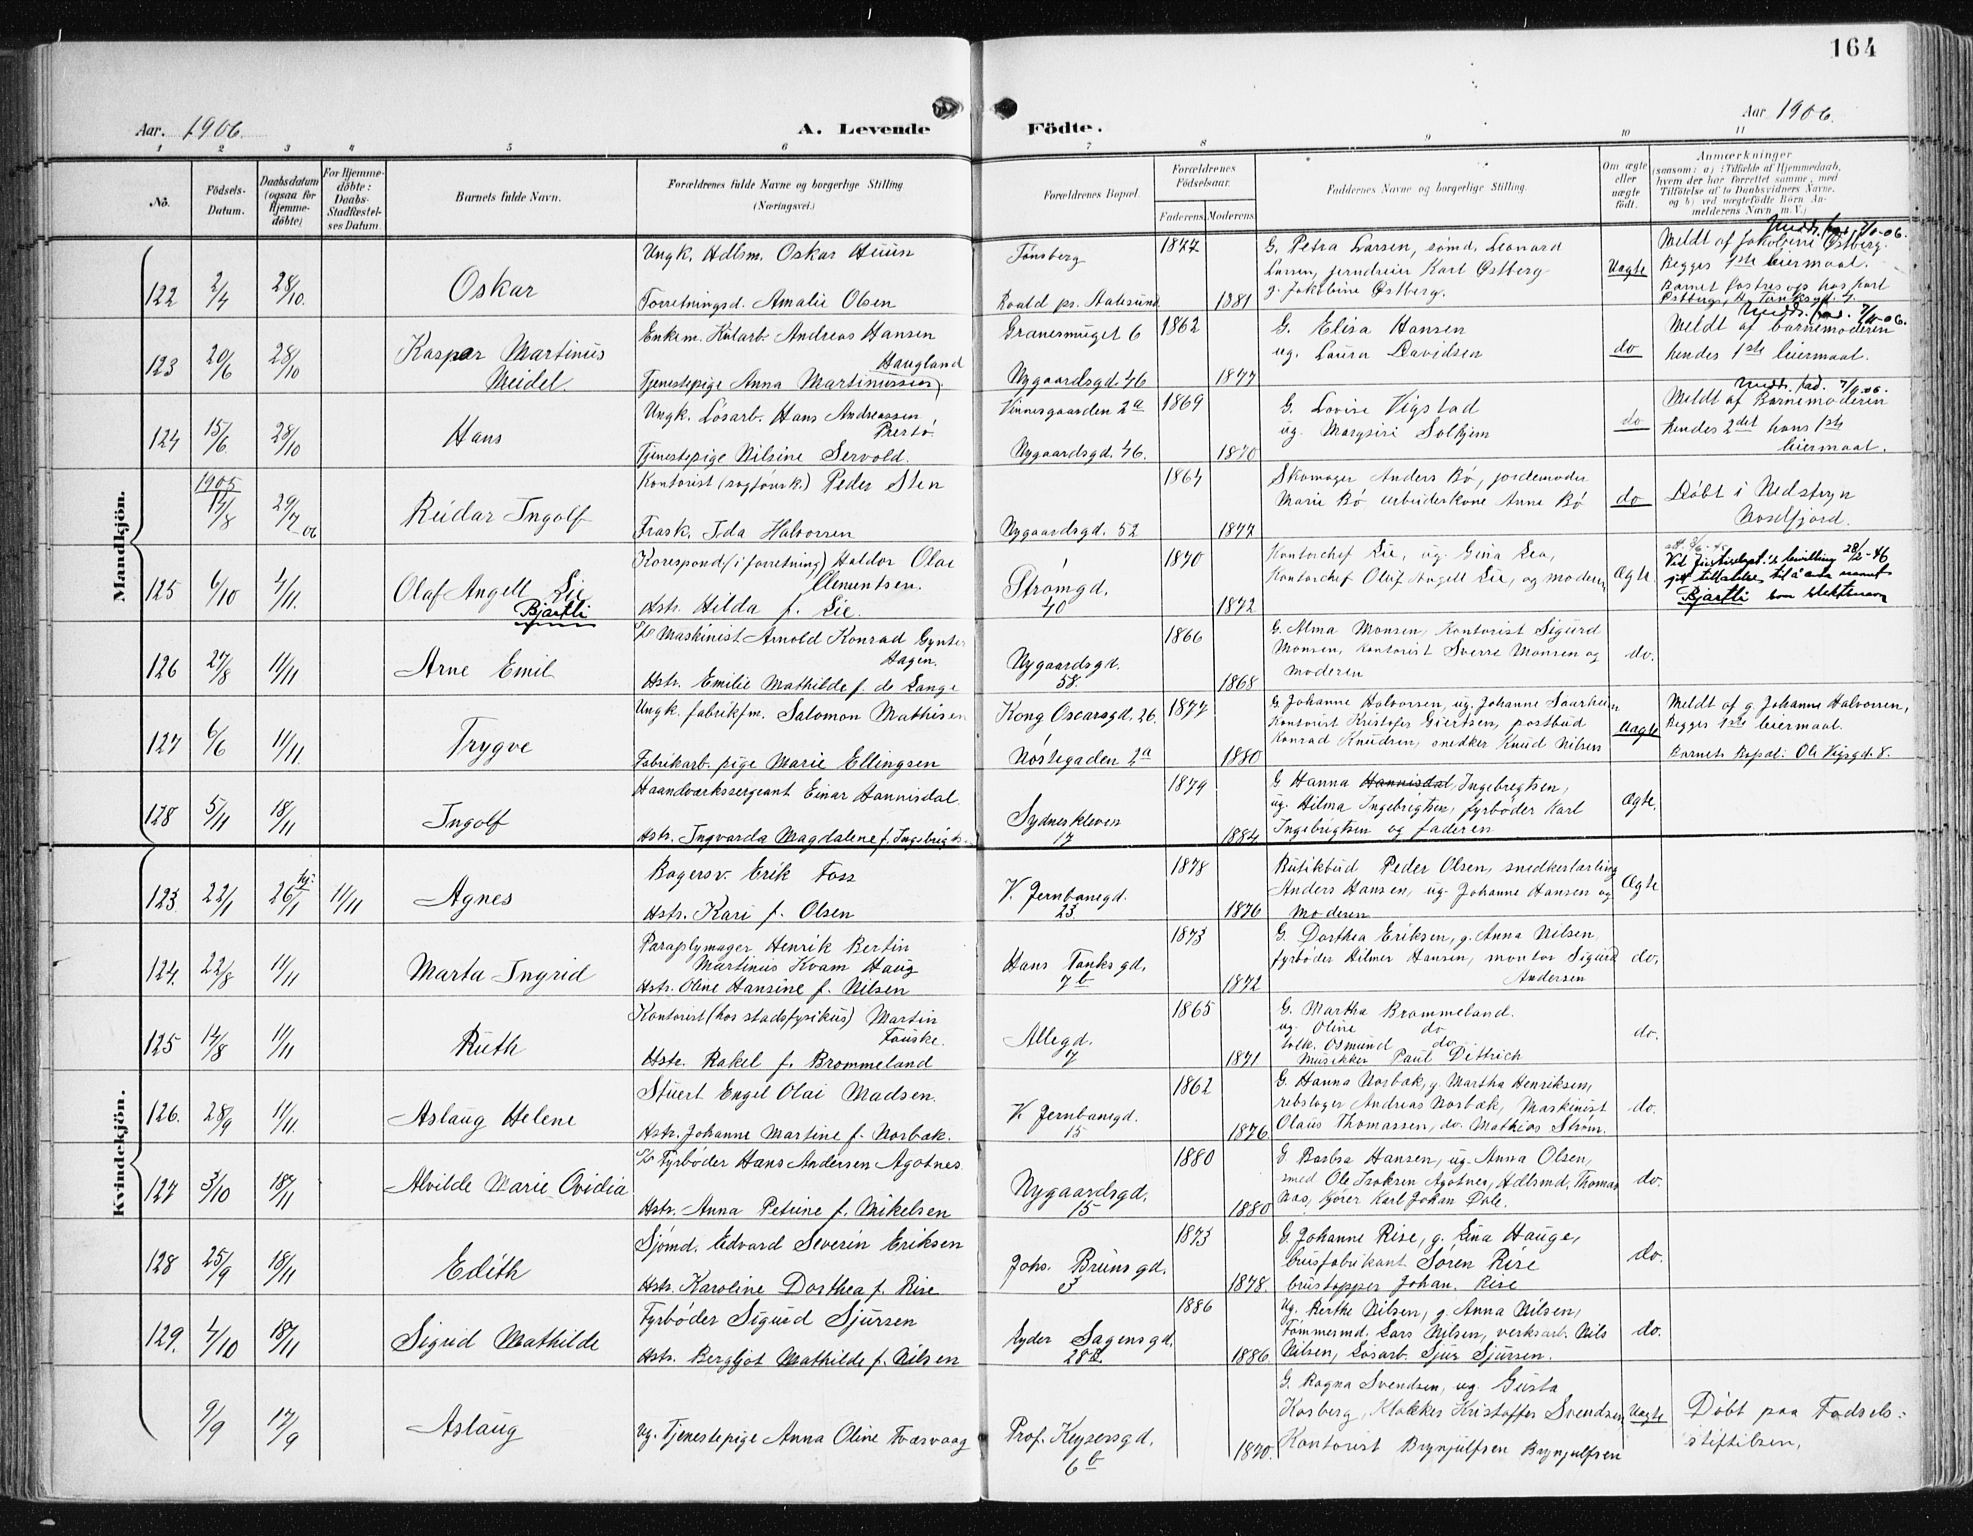 164
Aar. 1906.
A. Levende
Födte.
Aar 1906.
1 2 3 4 5 6 7 8 9 10 11
No.
Födsels-Datum.
Daabsdatum (ogsaa for Hjemmedöbte)
For Hjemmedöbte: Daabs-Stadfæstelses Datum
Barnets fulde Navn.
Forældrenes fulde Navne og borgerlige Stilling (Næringsvei.)
Forældrenes Bopæl.
Forældrenes Födselsaar.
Faderens Moderens
Faddernes Navne og borgerlige Stilling.
Om ægte eller uægte födt.
Anmærkninger
(saasom: a) i Tilfælde af Hjemmedaab, hvem der har forrettet samme, med Tilföielse af to Daabsvidners Navne, og b) ved uægtefödte Börn Anmelderens Navn m. V.)
Mandkjön.
122 2/4 28/10. Oskar
Ungk. Hdlsm. Oskar Huun
Forretningsd. Amalie Olsen
Tønsberg
Roald pr. Aalesund
1877 1881
G. Petra Larsen, sømd. Leonard
Larsen, jerndreier Karl Østberg
g. Jakobine Østberg.
Uægte
Meldt af Jakobine Østberg.
Begges 1ste leiermaal.
Barnet fostres op hos Karl
Østberg, H. Tanksgd. 4.
123 20/6 28/10 Kaspar Martinus
Meidel
Enkem. Kularb. Andreas Hansen
Haugland
Tjenestepige Anna Martinussen
Granesmuget 6
Nygaardsgd. 46
1862 1877
G. Elisa Hansen
ug. Laura Davidsen
do
Medd. fad. 7/11-06.
Meldt af barnemoderen
hendes 1ste leiermaal.
124 15/6 28/10 Hans
Ungk. Løsarb. Hans Andreassen
Prestø
Tjenestepige Nilsine Servold.
Vinnesgaarden 2a
Nygaardsgd. 46.
1869 1870
G. Lovise Vigstad
ug. Margsiri Solhjem
do
Meldt af Barnemoderen
hendes 2det hans 1ste
leiermaal.
1905
14/8 29/7 06 Reidar Ingolf
Kontorist (sagførerk.) Peder Sten
Frask. Ida Halvorsen
Nygaardsgd. 52
1864 1877
Skomager Anders Bø, jordemoder
Marie Bø arbeiderkone Anne Bø
do
Døbt i Nedstryn
Nordfjord.
125 6/10 4/11. Olaf Angell Lie
Bjartli
Korespond. (i forretning) Haldor Olai
Clementsen.
Hstr. Hilda f. Lie.
Strømgd.
40
1870 1872
Kontorchef Lie, ug. Gina Lea,
Kontorchef Oluf Angell Lie, og moderen
Ægte.
Ved Justisdept.s bevilling 28/2-46
gitt tillatelse til å anta navnet
Bjartli som slektsnavn
126 27/8 11/11 Arne Emil
Maskinist Arnold Konrad Gynter
Hagen.
Hstr. Emilie Mathilde f. de Lange
Nygaardsgd.
58.
1866 1868
G. Alma Monsen, Kontorist Sigurd
Monsen, Kontorist Sverre Monsen og
moderen
do.
127 6/6 11/11. Trygve
Ungk. fabrikfm. Salomon Mathisen
Fabrikarb. pige Marie Ellingsen
Kong Oscarsgd. 26.
Nøstegaden 2a
1877 1880
G. Johanne Halvorsen, ug. Johanne Saarheim
Kontorist Kristofer Giertsen, postbud
Konrad Knudsen, snedker Knud Nilsen
Uægte
Meldt af g. Johanne Halvorsen,
Begges 1ste leiermaal.
Barnets Bopæl: Ole Vigsgd. 8.
128 5/11 18/11 Ingolf
Haandværkssergeant Einar Hannisdal.
Hstr. Ingvarda Magdalene f. Ingebrigts.
Sydneskleven
17
1879 1884
G. Hanna Hannisdal, Ingebregtsen,
ug. Hilma Ingebrigtsen, fyrbøder Karl
Ingebrigtsen og faderen
Ægte.
Kvindekjön.
123. 22/1 Hj. 26/1 11/11 Agnes
Bagersv. Erik Foss
Hstr. Kari f. Olsen
V. Jernbanegd.
23
1878 1876
Butikbud Peder Olsen, snedkerlærling
Anders Hansen, ug. Johanne Hansen og
Moderen
Ægte
124. 22/8 11/11 Marta Ingrid
Paraplymager Henrik Bertin
Martinius Kvam Haug
Hstr. Oline Hansine f. Nilsen
Hans Tanks gd.
7b
1873 1872
G. Dorthea Eriksen, g. Anna Nilsen,
fyrbøder Hilmer Hansen, montør Sigurd
Andersen
do.
125 14/8 11/11 Ruth
Kontorist (hos stadsfysikus) Martin
Fauske.
Hstr. Rakel f. Brommeland
Allegd.
7
1865 1871
G. Martha Brommeland.
ug. Oline do
Osmund do
Musikker Paul Dittrich
do.
126. 28/9 11/11. Aslaug Helene
Stuert Engel Olai Madsen.
Hstr. Johanne Martine f. Norbak.
V. Jernbanegd.
15
1862 1876
G. Hanna Norbak, g. Martha Henriksen,
rebslager Andreas Norbak, Maskinist
Olaus Thomassen, do. Mathias Strøm.
do.
127 3/10 18/11 Alvilde Marie Ovidia
Fyrbøder Hans Andersen Agotnes.
Hstr. Anna Petrine f. Mikelsen
Nygaardsgd.
15
1880 1880
G. Barbra Hansen, ug. Anna Olsen,
smed Ole Isaksen Agotnes, Hdlsmd. Thomas
Aas, Kjører Karl Johan Dale.
do.
128 25/9 18/11 Edith
Sjømd. Edvard Severin Eriksen
Hstr. Karoline Dorthea f. Rise
Johs. Bruns gd.
3
1873 1878.
G. Johanne Rise, g. Lina Hauge,
brusfabrikant Søren Rise
brustapper Johan. Rise
do.
129. 4/10 18/11 Sigrid Mathilde
Fyrbøder Sigurd Sjursen
Hstr. Bergljot Mathilde f. Nilsen
Lyder Sagensgd.
28
1886 1886.
Ug. Berthe Nilsen, g. Anna Nilsen,
Tømmermd. Lars Nilsen, verksarb. Nils
Nilsen, Løsarb. Sjur Sjursen.
do.
9/9 17/9 Aslaug
Ug. Tjenestepige Anna Oline Tvæsvaag
Prof. Keysersgd.
6b
1870.
G. Ragna Svendsen, ug. Gusta
Korberg, Klokker Kristoffer Svendsen
Kontorist Brynjulfsen Brynjulfsen
Uægte
Døbt paa Fødsels-
stiftelsen.